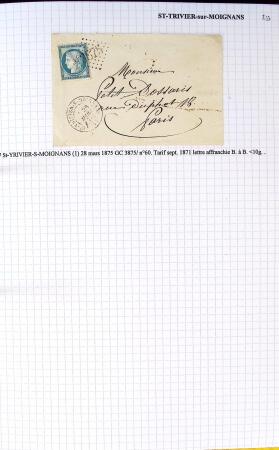 ST-TRIVIER-sur-MOIGNANS
Monsieur
Petit Dossaris
rue Duphot 18
Paris
St-YRIVIER-S-MOIGNANS (1) 28 mars 1875 GC 3875/ n°60. Tarif sept. 1871 lettre affranchie B. à B. <10g.